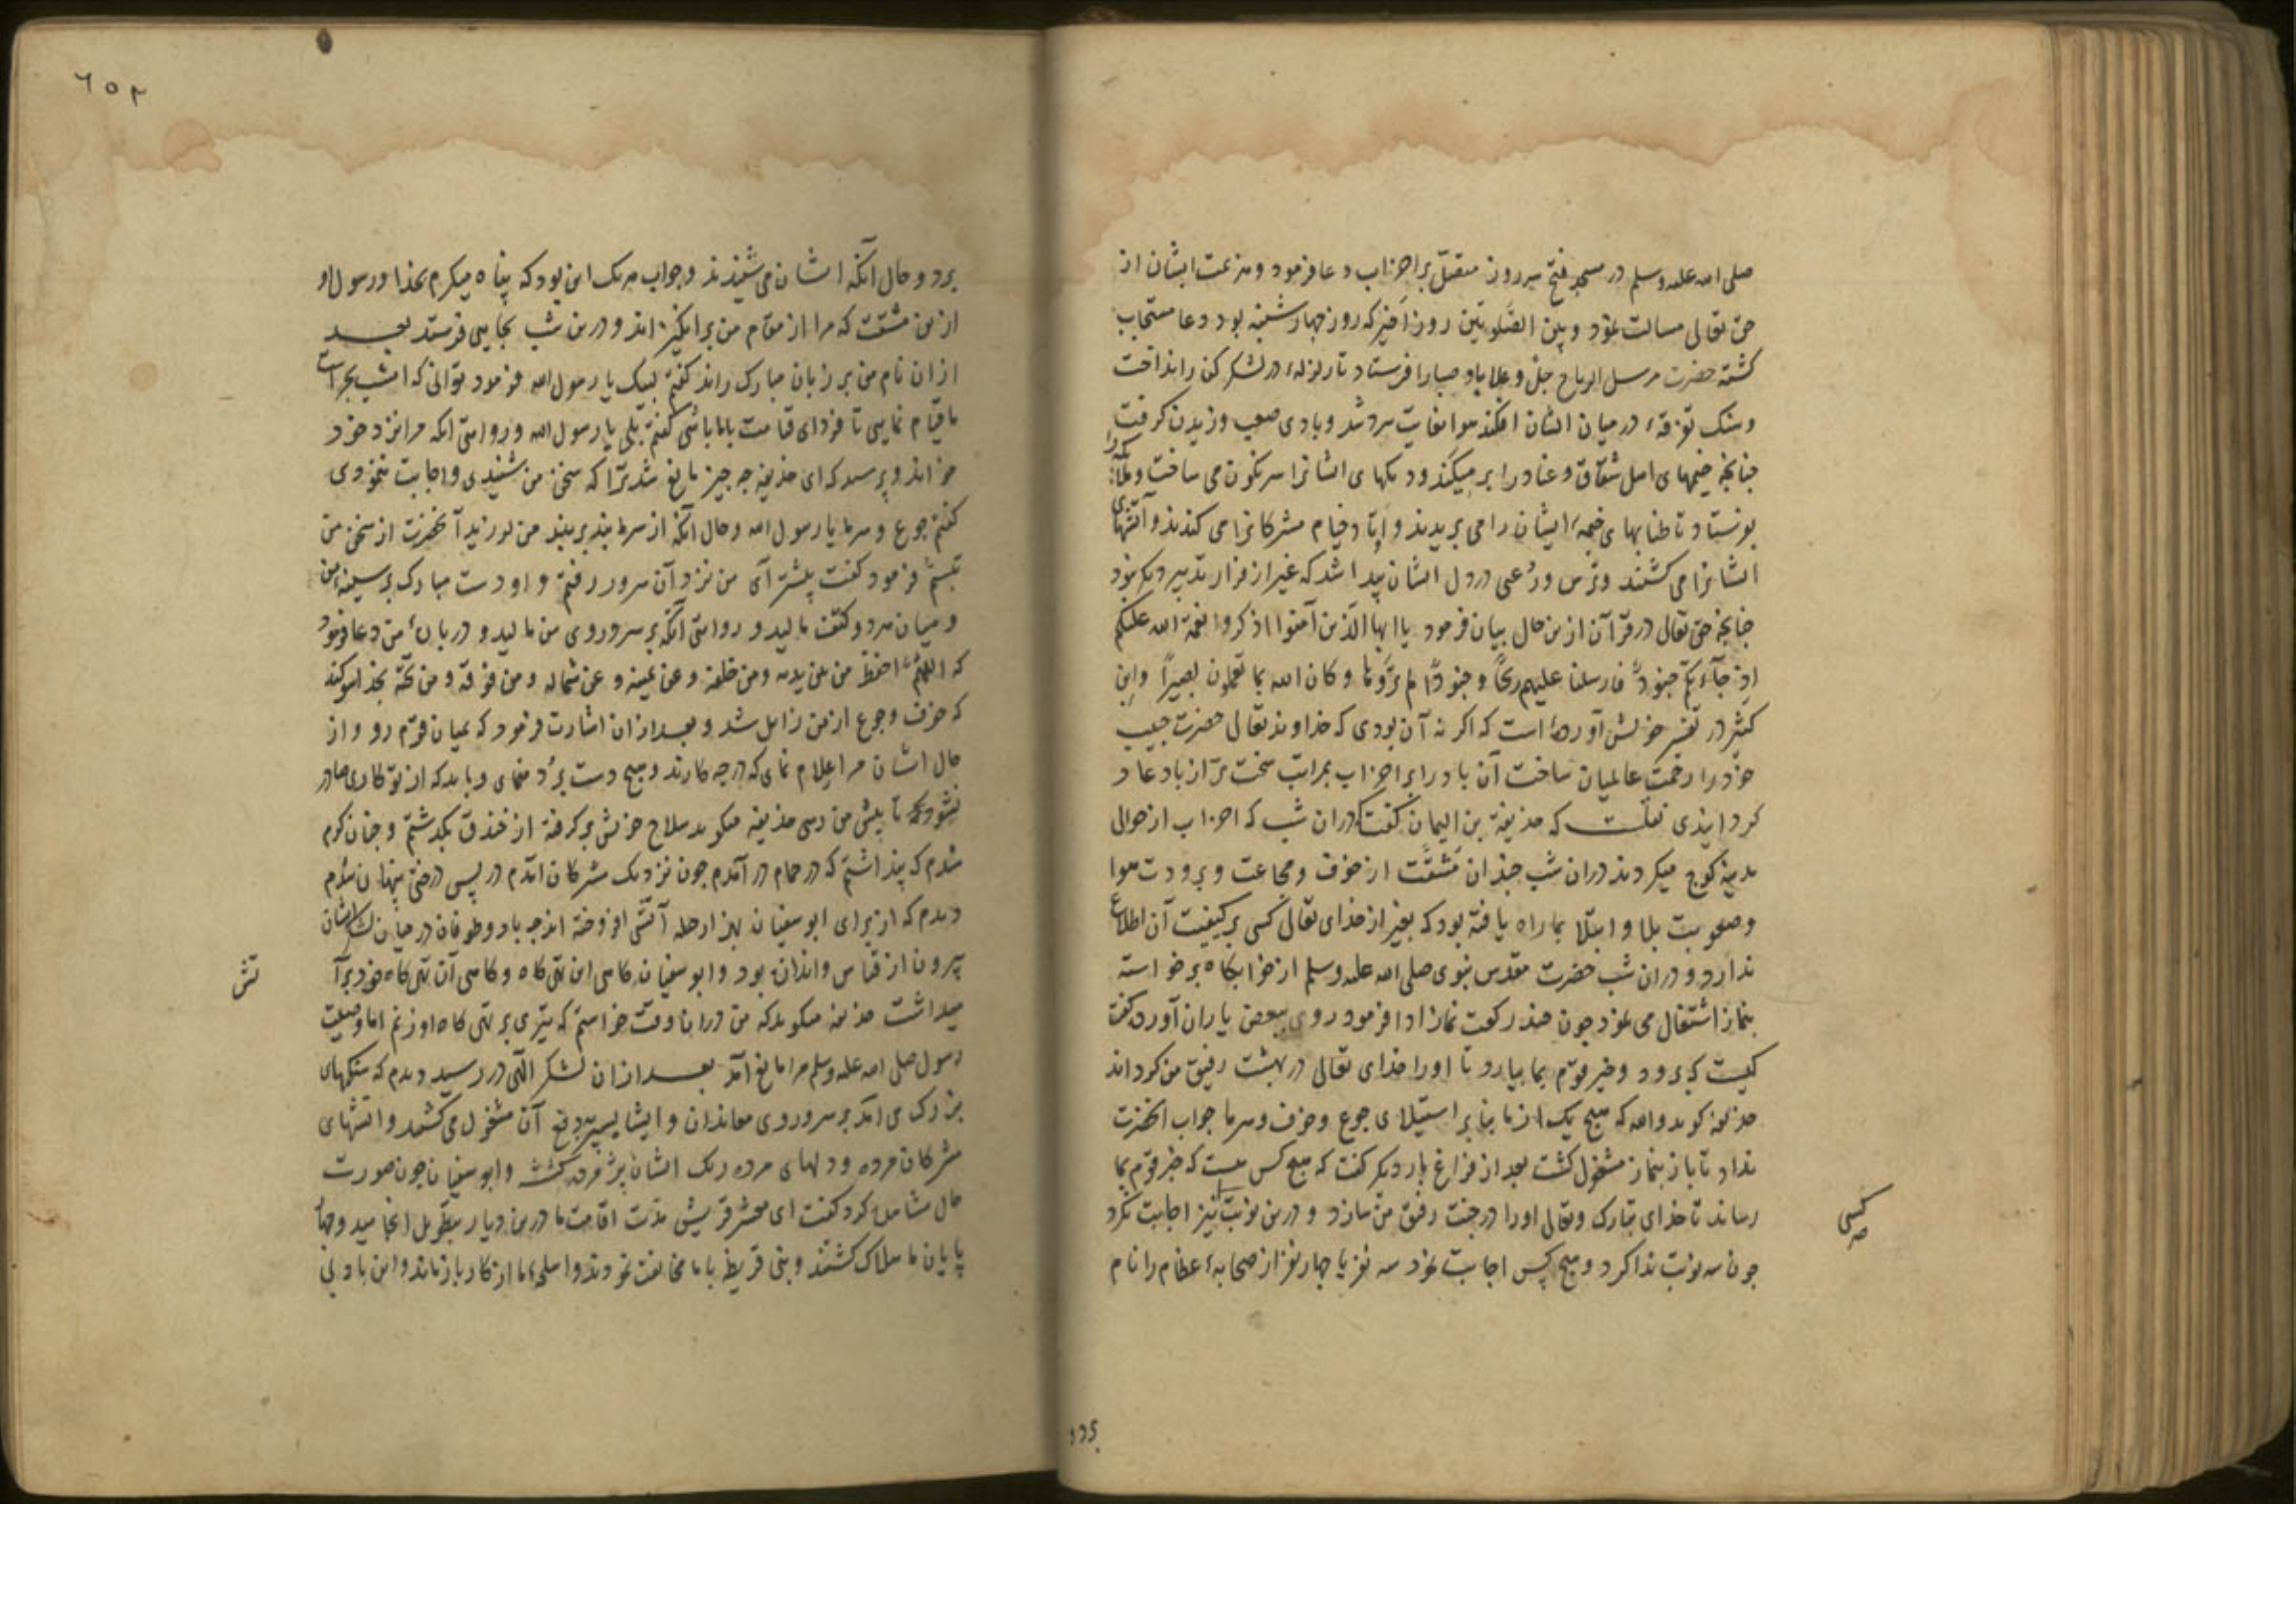 صلی الله علیه وسلم در مسجد فتح سه روز متصل بر احزاب دعا فرمود و هزیمت ایشان از
حق تعالی مسالت نمود و بین الصلوتین روز اخیر که روز چهارشنبه بود دعا مستجاب
کشته حضرت مرسل الریاح جل وعلا باد صبا را فرستاد تا زلزله در لشکر کفر انداخت
و سنک تفرقه در میان ایشان افکند هوا بغایت سرد شد و بادی صعب وزیدن کرفت
چنانچه خیمهای اهل شقاق و عناد را بر میکند و دیکهای ایشانرا سرنکون می ساخت و ملائکه را
بفرستاد تا طنابهای خیمه ایشان را می بریدند و اوتاد خیام مشرکانرا می کندند و آتشهای
ایشانرا می کشتند و ترس و رعبی در دل ایشان پیدا شد که غیر از فرار تدبیر دیکر نبود
چنانچه حق تعالی در قرآن ازین حال بیان فرمود یا ایها الذین آمنوا اذکروا نعمة الله علیکم
اذ جآءتکم جنود فارسلنا علیهم ریحا و جنودا لم تروها و کان الله بما تعملون بصیرا و ابن
کثیر در تفسیر خویش آورده است که اکر نه آن بودی که خداوند تعالی حضرت حبیب
خود را رحمت عالمیان ساخت آن باد را بر احزاب بمراتب سخت تر از باد عاد
کردانیدی نقلست که حذیفة بن الیمان کفت که دران شب که احزاب از حوالی
مدینه کوچ میکردند دران شب چندان مشقت از خوف و مجاعت و برودت هوا
و صعوبت بلا و ابتلا بما راه یافته بود که بغیر از خدای تعالی کسی بر کیفیت آن اطلاع
ندارد و دران شب حضرت مقدس نبوی صلی الله علیه وسلم از خوابکاه برخواسته
بنماز اشتغال می نمود چون چند رکعت نماز ادا فرمود روی ببعض یاران آورده کفت
کیست که برود و خبر قوم بما بیارد تا او را خدای تعالی در بهشت رفیق من کرداند
حذیفه کوید والله که هیچ یک از ما بنابر استیلای جوع و خوف و سرما جواب آنحضرت
نداد تا باز بنماز مشغول کشت بعد از فراغ بار دیکر کفت که هیچ کس هست که خبر قوم بما
رساند تا خدای تبارک وتعالی او را در جنت رفیق من سازد و درین نوبت نیز اجابت نکرد
کسی
چون سه نوبت ندا کرد و هیچ کس اجابت ننمود سه نفر یا چهار نفر از صحابه عظام را نام
برد
برد و حال آنکه ایشان می شنیدند و جواب هریک این بود که پناه میکرم بخدا و رسول او
ازین مشقت که مرا از مقام من برانکیزاند و درین شب بجایی فرستد بعد
ازان نام من بر زبان مبارک راند کفتم لبیک یا رسول الله فرمود توانی که امشب بحراست
ما قیام نمایی تا فردای قیامت با ما باشی کفتم بلی یا رسول الله و روایتی آنکه مرا نزد خود
خواند و پرسید که ای حذیفه چه چیز مانع شد ترا که سخن من شنیدی و اجابت ننمودی
کفتم جوع و سرما یا رسول الله و حال آنکه از سرما بند بر بند من لرزید آنحضرت از سخن من
تبسم فرمود کفت پیشتر آی من نزد آن سرور رفتم و او دست مبارک بر سینه من
و میان هر دو کتفت مالید و روایتی آنکه بر سر و روی من مالید و دربارۀ من دعا فرمود
که اللهم احفظ من بین یدیه و من خلفه و عن یمینه و عن شماله و من فوقه و من تحته بخدا سوکند
که خوف و جوع از من زایل شد و بعد ازان اشارت فرمود که بمیان قوم رو و از
حال ایشان مرا اعلام نمای که در چه کارند و هیچ دست برد منمای و باید که از تو کاری صادر
نشود تا پیش من رسی حذیفه میکوید سلاح خویش بر کرفته از خندق بکذشتم و چنان کرم
شدم که پنداشتم که در حمام در آمدم چون نزدیک مشرکان آمدم در پس درختی پنهان شدم
دیدم که از برای ابوسفیان آتشی افروخته اند چه باد و طوفان در میان لشکر ایشان
بیرون از قیاس و اندازه بود و ابوسفیان کاهی این تهی کاه و کاهی آن تهی کاه خود بر آتش
میداشت حذیفه میکوید که من دران وقت خواستم که تیری بر تهی کاه او زنم اما وصیت
رسول صلی الله علیه وسلم مرا مانع آمد بعد ازان لشکر الهی در رسید دیدم که سنکهای
بزرک می آمد بر سر و روی معاندان و ایشان بسپر دفع آن مشغول می کشتند و آتشهای
مشرکان مرده و دلهای مرده ریک ایشان پژمرده کشت و ابوسفیان چون صورت
حال مشاهده کرد کفت ای معشر قریش مدت اقامت ما درین دیار بتطویل انجامید و چهار
پایان ما هلاک کشتند و بنی قریظه با ما مخالفت نمودند و اسلحه ما از کار باز ماند و این باد نی